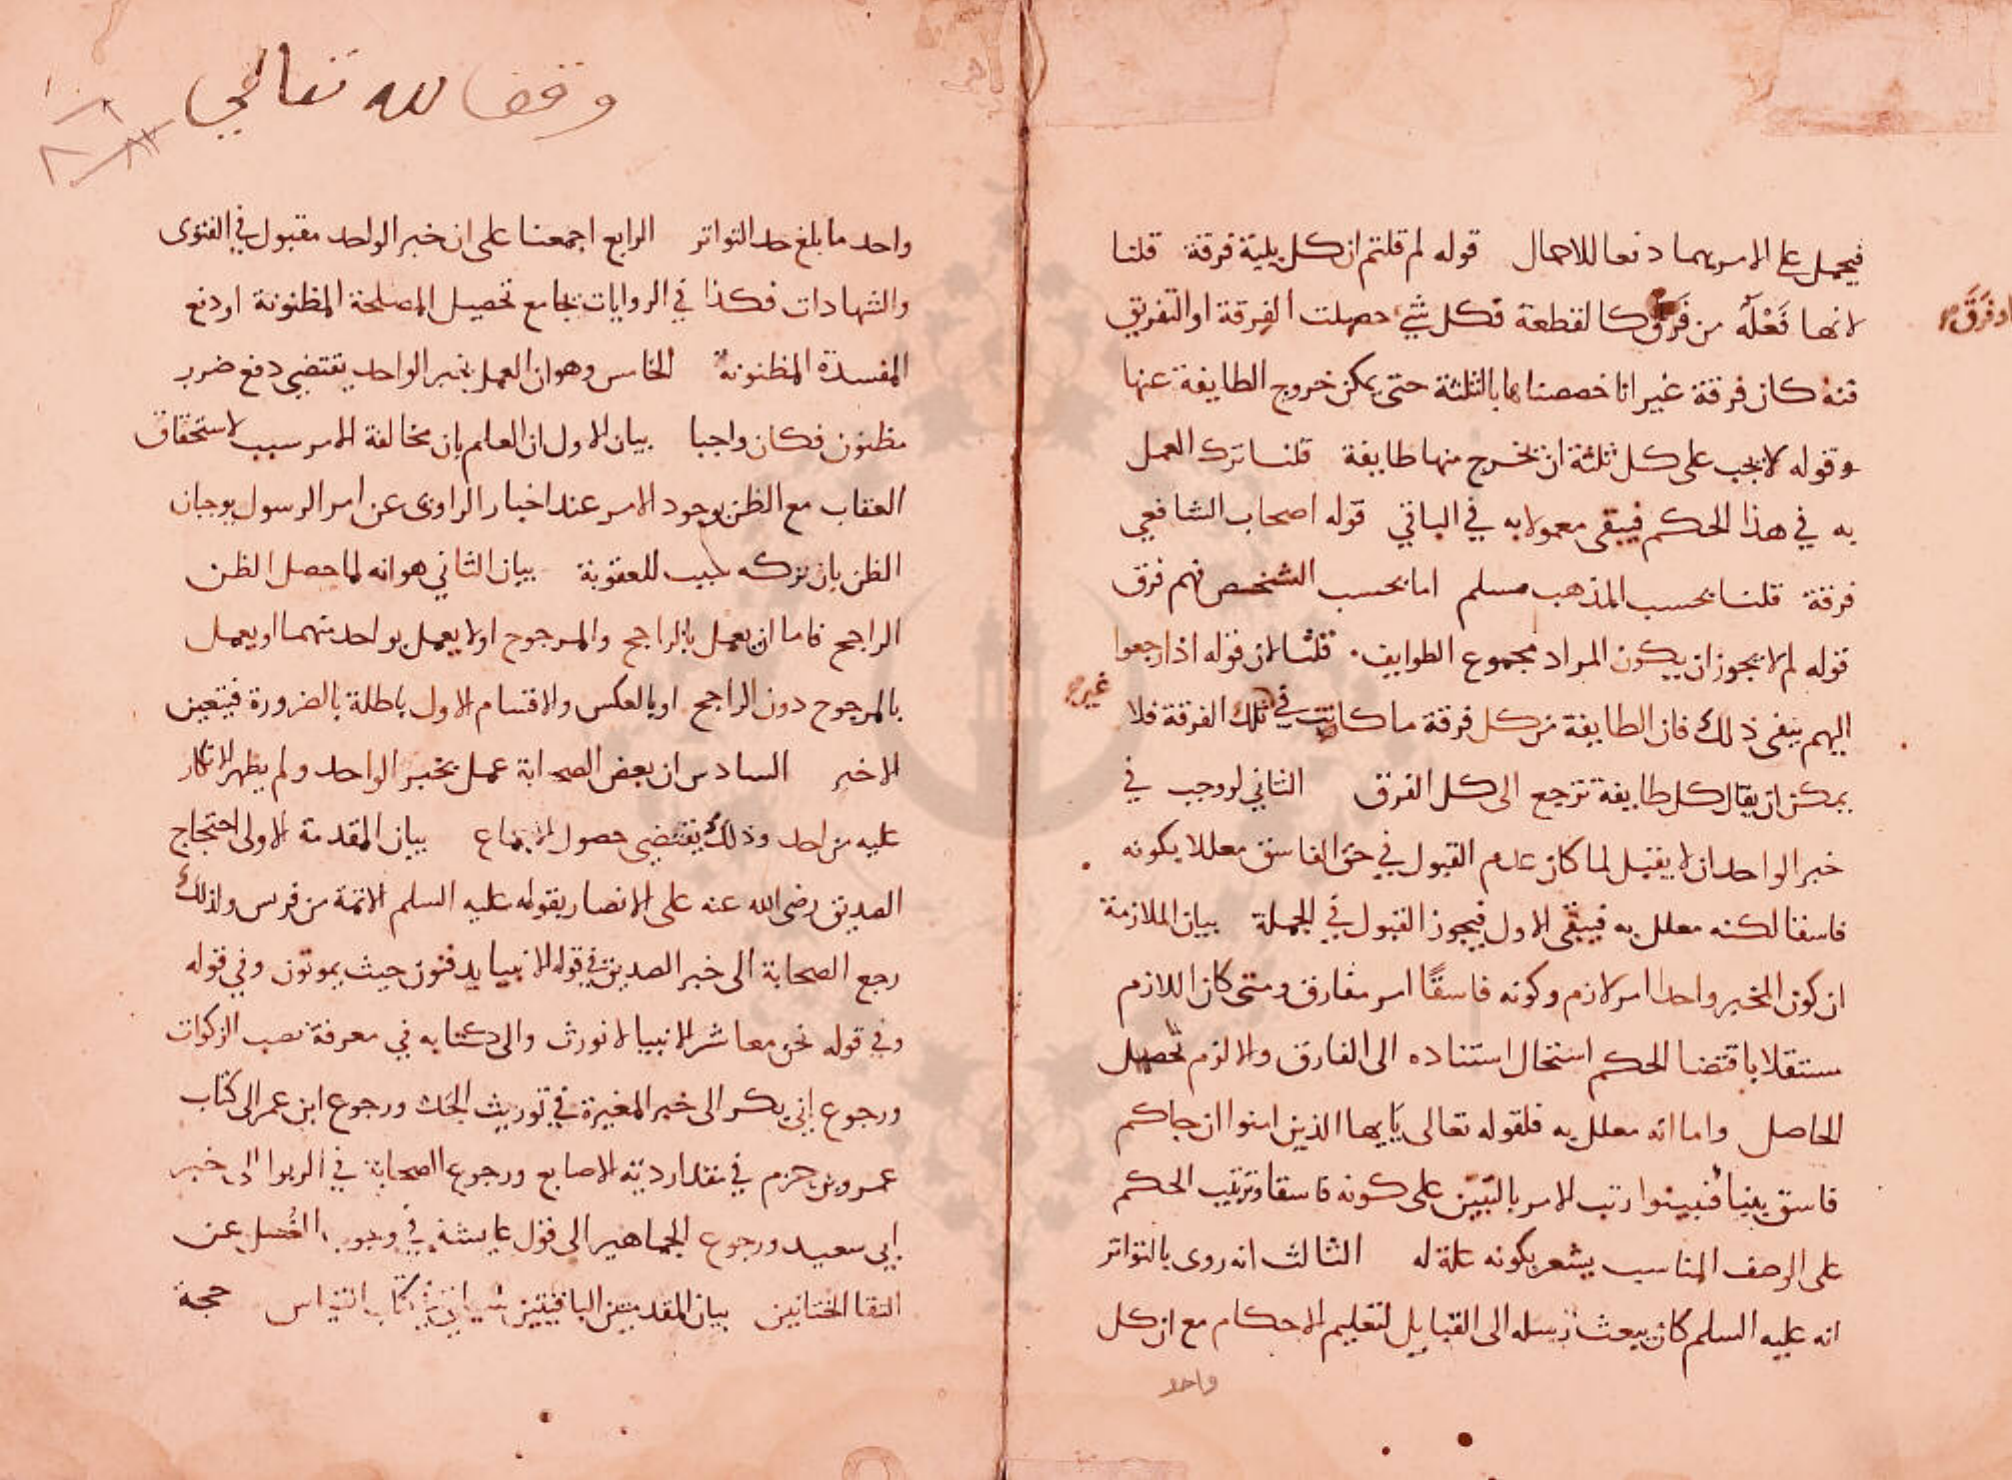 فيحمل على الامر بهما دفعا للاحمال قوله لم قلتم ان كل ثلثة فرقة قلنا
لانها فَعْلَة من فَرَقَ كالقطعة فكل شي حصلت الفِرقة او التفريق
او فَرَّقَ صح
فيه كان فرقة غير انا خصصناها بالثلثة حتى يمكن خروج الطايفة عنها
وقوله لا يجب على كل ثلثة ان يخرج منها طايفة قلنا ترك العمل
به في هذا الحكم فيبقى معمولا به في الباقي قوله اصحاب الشافعي
فرقة قلنا بحسب المذهب مسلم اما بحسب الشخص فهم فرق
قوله لم لا يجوز ان يكون المراد مجموع الطوايف قلنا لان قوله اذا رجعوا
اليهم ينفي ذلك فان الطايفة من كل فرقة ما كانت في تلك الفرقة فلا
غير صح
يمكن ان يقال كل طايفة ترجع الى كل الفرق الثاني لو وجب في
خبر الواحد ان لا يقبل لما كان عدم القبول في حق الفاسق معللا بكونه
فاسقا لكنه معلل به فيبقى الاول فيجوز القبول في الجملة بيان الملازمة
ان كون المخبر واحدا امر لازم وكونه فاسقًا امر مفارق ومتى كان اللازم
مستقلا باقتضا الحكم استحال استناده الى الفارق والا لزم تحصيل
الحاصل واما انه معلل به فلقوله تعالى يايها الذين امنوا ان جاكم
فاسق بنبا فتبينوا رتب الامر بالتبين على كونه فاسقا وترتيب الحكم
على الوصف المناسب يشعر بكونه علة له الثالث انه روى بالتواتر
انه عليه السلم كان يبعث رسله الى القبايل لتعليم الاحكام مع ان كل
واحد
وقف لله تعالى
واحد ما بلغ حد التواتر الرابع اجمعنا على ان خبر الواحد مقبول في الفتوى
والشهادات فكذا في الروايات بجامع تحصيل المصلحة المظنونة او دفع
المفسدة المظنونة الخامس وهو ان العمل بخبر الواحد يقتضي دفع ضرر
مظنون فكان واجبا بيان الاول ان العلم بان مخالفة الامر سبب لاستحقاق
العقاب مع الظن بوجود الامر عند اخبار الراوى عن امر الرسول يوجبان
الظن بان تركه سبب للعقوبة بيان الثاني هو انه لما حصل الظن
الراجح فاما ان يعمل بالراجح والمرجوح او لا يعمل بواحد منهما او يعمل
بالمرجوح دون الراجح او بالعكس والاقسام الاول باطلة بالضرورة فيتعين
الاخير السادس ان بعض الصحابة عمل بخبر الواحد ولم يظهر الانكار
عليه من احد وذلك يقتضي حصول الاجماع بيان المقدمة الاولى احتجاج
الصديق رضى الله عنه على الانصار بقوله عليه السلم الائمة من قريش ولذلك
رجع الصحابة الى خبر الصديق في قوله الانبيا يدفنون حيث يموتون وفي قوله
وفي قوله نحن معاشر الانبيا لا نورث والى كتابه في معرفة نصب الزكوات
ورجوع ابي بكر الى خبر المغيرة في توريث الجدة ورجوع ابن عمر الى كتاب
عمرو بن حزم في مقدار دية الاصابع ورجوع الصحابة في الربوا الى خبر
ابى سعيد ورجوع الجماهير الى قول عايشة في وجوب الغُسل عن
التقا الختانين بيان المقدمتين الباقيتين سياتي في كتاب القياس حجة